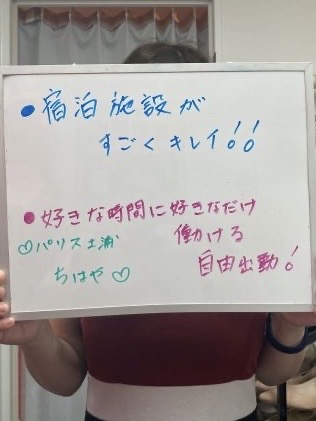 ●宿泊施設が
すごくキレイ!!
●好きな時間に好きなだけ
働ける
自由出勤!
♡パリス土浦
ちはや♡